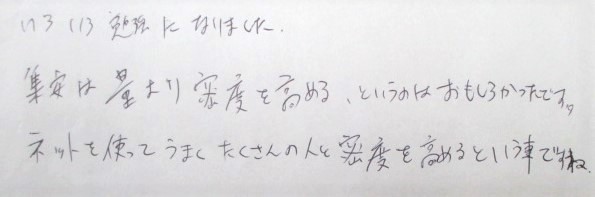 いろいろ勉強になりました。
集客は量より密度を高める、というのはおもしろかったです。
ネットを使ってうまくたくさんの人と密度を高めるという事ですね。